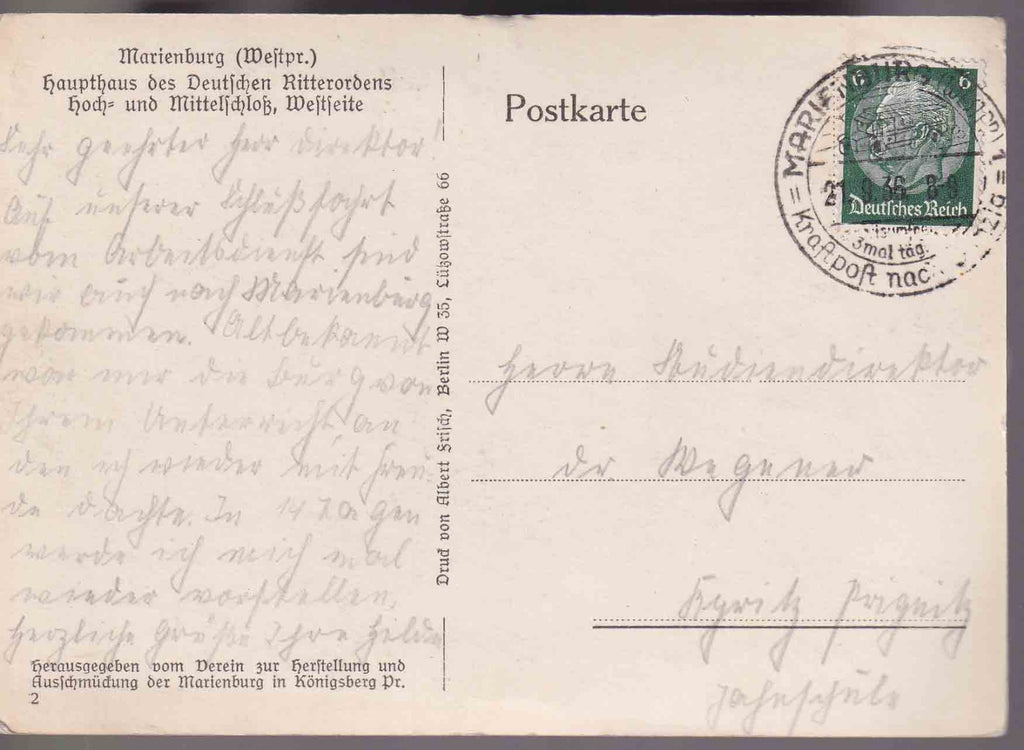 Marienburg (Westpr.)
Haupthaus des Deutschen Ritterordens
Hoch= und Mittelschloß, Westseite
Sehr geehrter Herr Direktor!
Auf unserer Schlußfahrt
vom Arbeitsdienst sind
wir auch nach Marienburg
gekommen. Altbekannt
war mir die Burg von
Ihrem Unterricht, an
den ich wieder mit Freu-
de dachte. In 14 Tagen
werde ich mich mal
wieder vorstellen.
Herzliche Grüße Ihre Hilde
Herausgegeben vom Verein zur Herstellung und
Ausschmückung der Marienburg in Königsberg Pr.
2
Druck von Albert Frisch, Berlin W 35, Lützowstraße 66
Postkarte
6
Deutsches Reich
= MARIENBURG 1 =
21.9.36. 8-9
3mal täg.
Kraftpost nac
Herrn Studiendirektor
Dr. Wegener
Kyritz Prignitz
Jahnschule